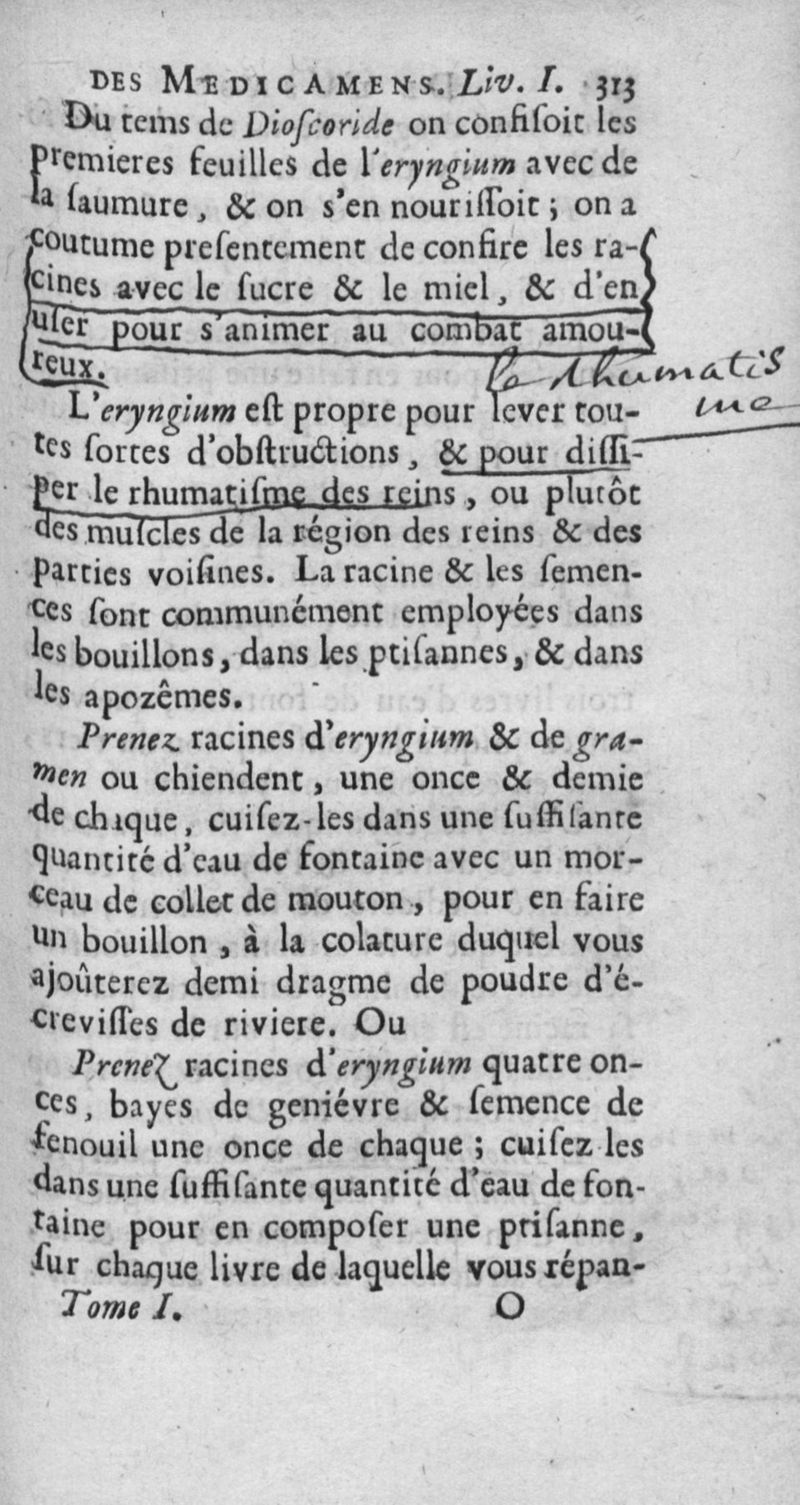 DES MEDICAMENS. Liv. I. 313
Du tems de Dioſcoride on confiſoit les
premieres feuilles de l'eryngium avec de
la ſaumure, & on s'en nouriſſoit ; on a
coutume preſentement de confire les ra-
cines avec le ſucre & le miel, & d'en
uſer pour s'animer au combat amou-
reux.
le rhumatis
me
L'eryngium eſt propre pour lever tou-
tes ſortes d'obſtructions, & pour diſſi-
per le rhumatiſme des reins, ou plutôt
des muſcles de la région des reins & des
parties voiſines. La racine & les ſemen-
ces ſont communément employées dans
les bouillons, dans les ptiſannes, & dans
les apozêmes.
Prenez racines d'eryngium & de gra-
men ou chiendent, une once & demie
de chaque, cuiſez-les dans une ſuffiſante
quantité d'eau de fontaine avec un mor-
ceau de collet de mouton, pour en faire
un bouillon, à la colature duquel vous
ajoûterez demi dragme de poudre d'é-
creviſſes de riviere. Ou
Prenez racines d'eryngium quatre on-
ces, bayes de geniévre & ſemence de
fenouil une once de chaque ; cuiſez les
dans une ſuffiſante quantité d'eau de fon-
taine pour en compoſer une ptiſanne,
ſur chaque livre de laquelle vous répan-
Tome I. O